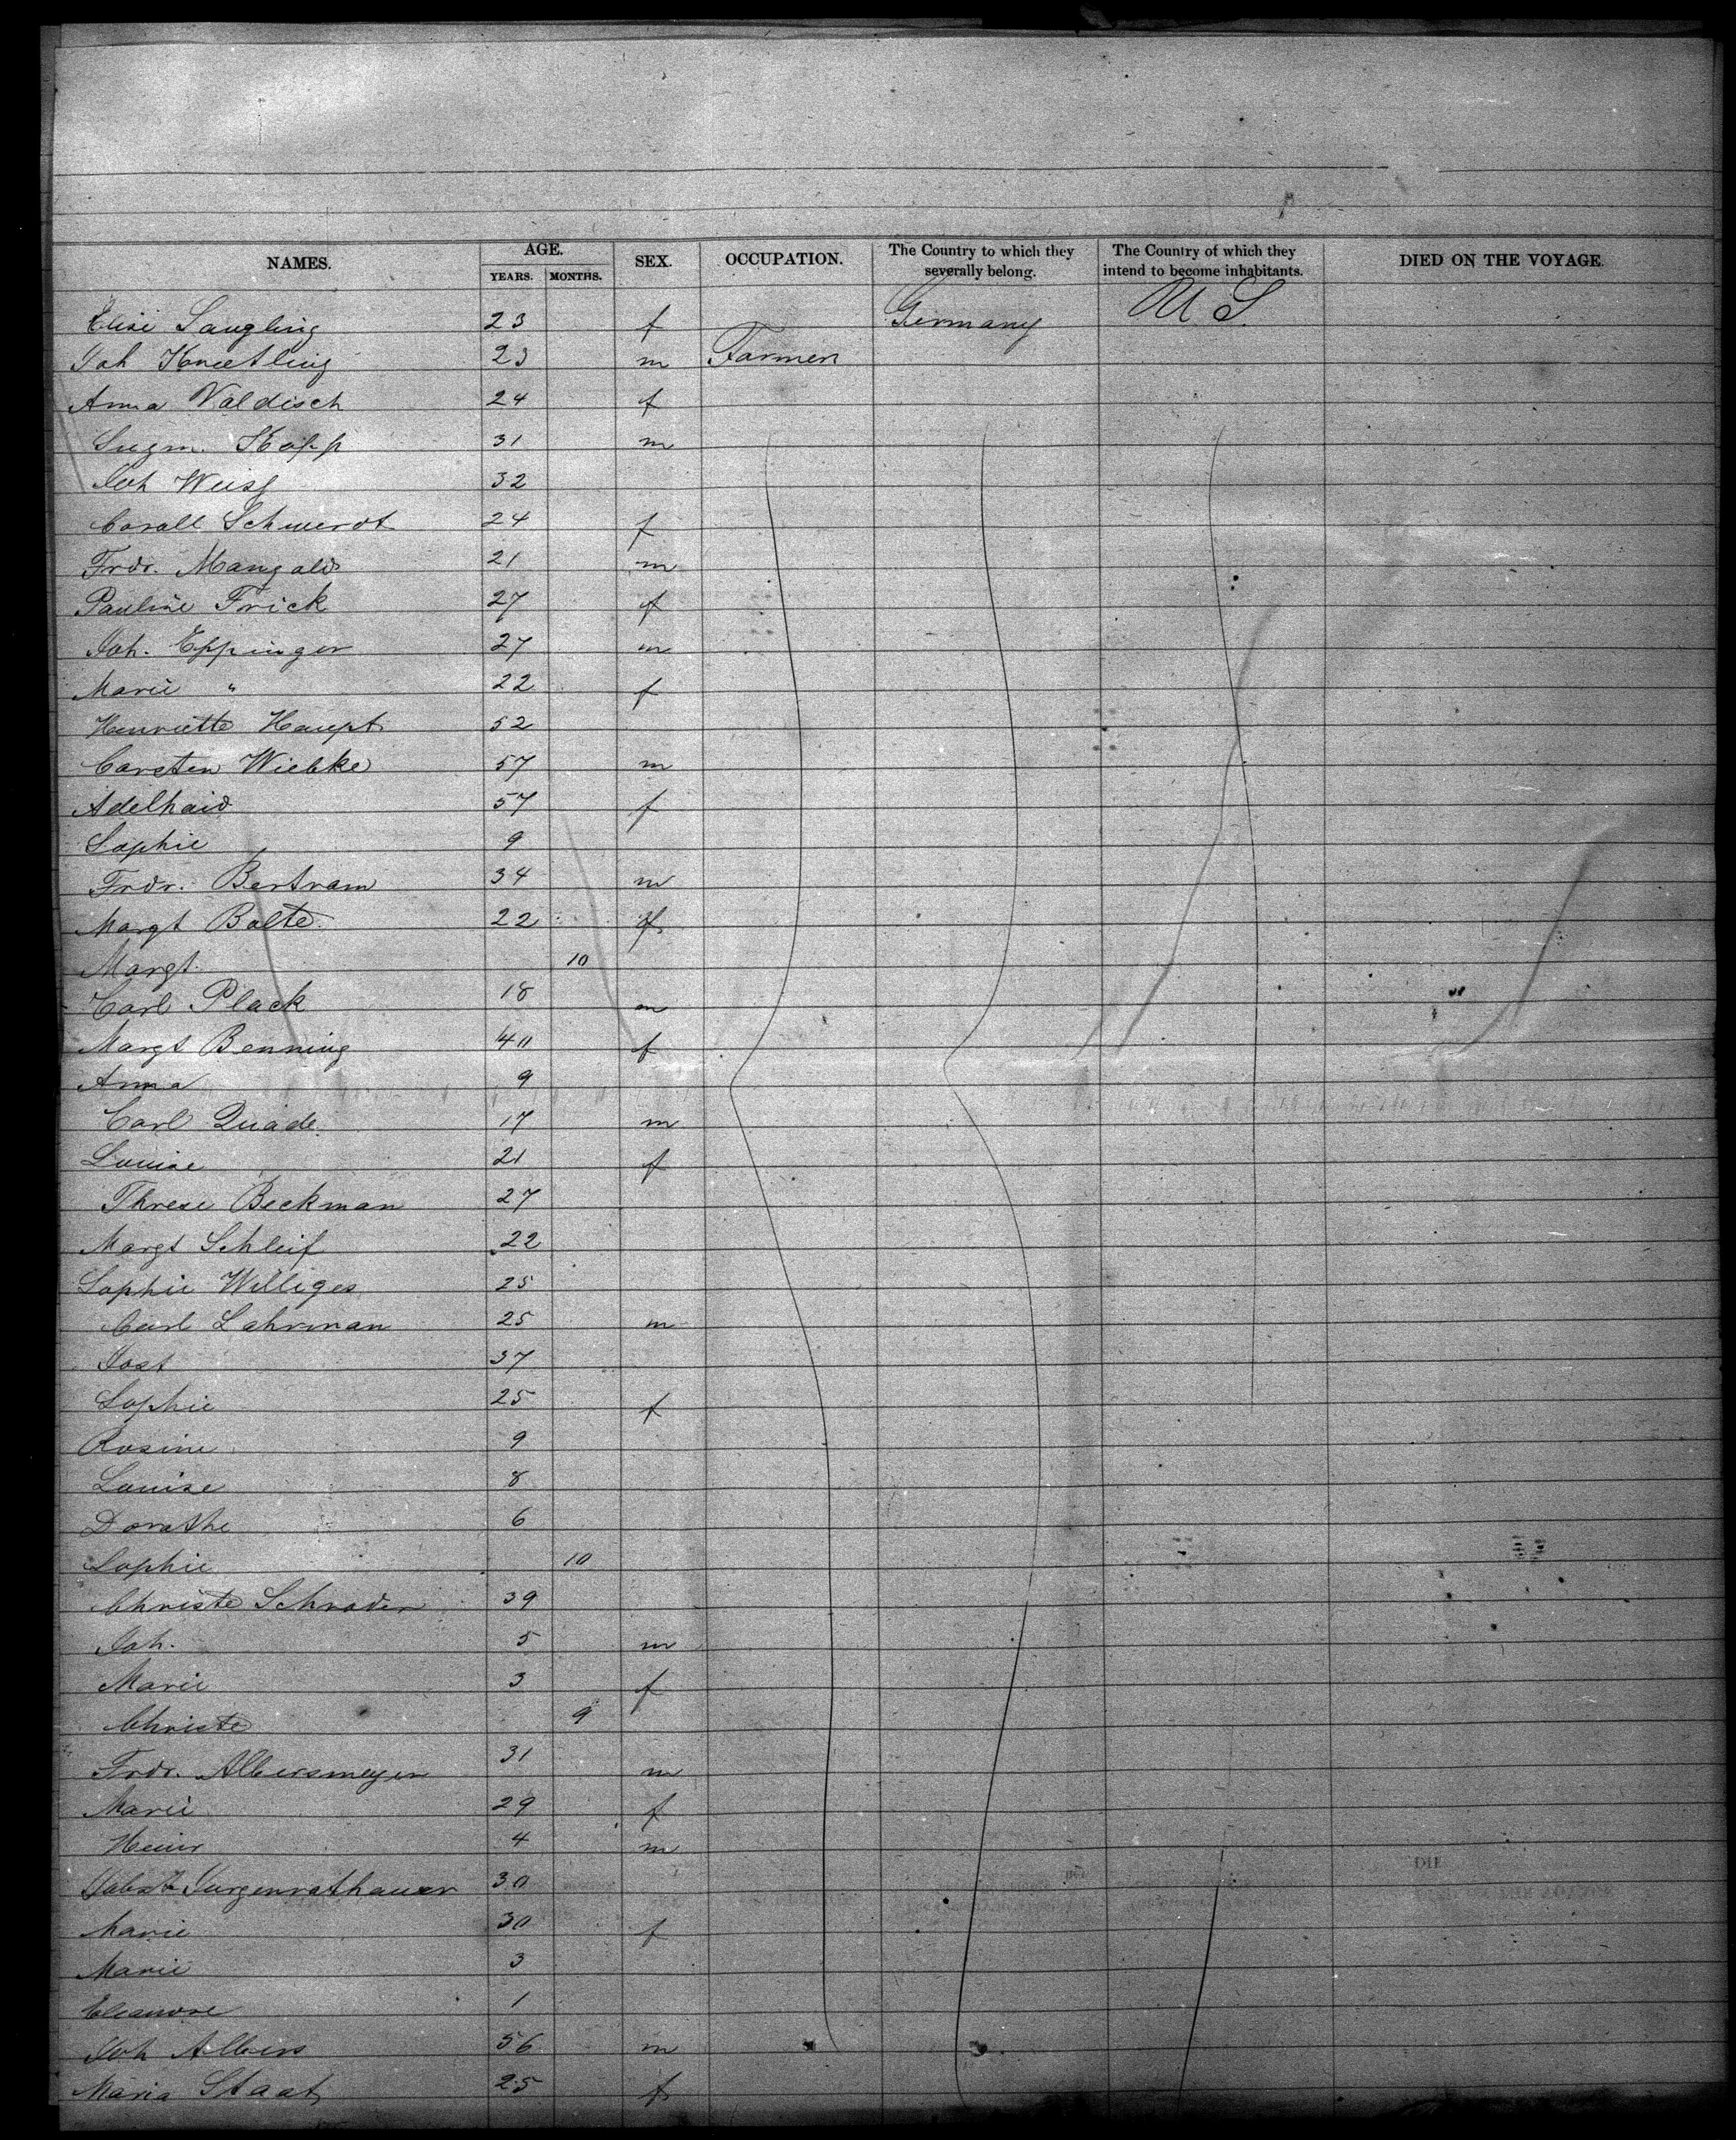 NAMES. AGE. SEX. OCCUPATION. The Country to which they severally belong. The Country of which they intend to become inhabitants. DIED ON THE VOYAGE.
YEARS. MONTHS.
Elise Saugling 23 f Germany U S.
Joh 23 m Farmer
Anna Valdisch 24 f
Kopp 31 m
Joh Weiss 32
Schwerdt 24 f
Frdr. Mangold 21 m
Pauline Frick 27 f
Joh. Eppinger 27 m
Marie " 22 f
Henriette Haupt 52
Carsten Wiebke 57 m
Adelhaid 57 f
Sophie 9
Frdr. Bertram 34 m
Margt Bolte 22 f
Margt. 10
Carl Plack 18 m
Margt Benning 40 f
Anna 9
Carl Quade 17 m
Louise 21 f
Threse Beckman 27
Margt Schleif 22
Sophie Williges 25
Carl Lahrman 25 m
Jost 37
Sophie 25 f
Rosine 9
Louise 8
Dorathe 6
Sophie 10
Christe Schrader 39
Joh. 5 m
Marie 3 f
Christe 9
Frdr. Albersmeyer 31 m
Marie 29 f
Heinr 4 m
Jurgenrathauer 30
Marie 30 f
Marie 3
Eleanore 1
Joh Albers 56 m
Maria Staats 25 f